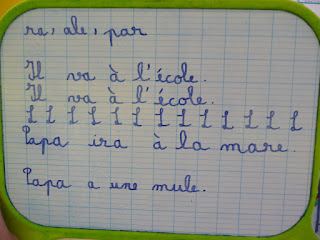 ra, ale, par
Il va à l'école.
Il va à l'école.
I I I I I I I I I I I I I
Papa ira à la mare.
Papa a une mule.